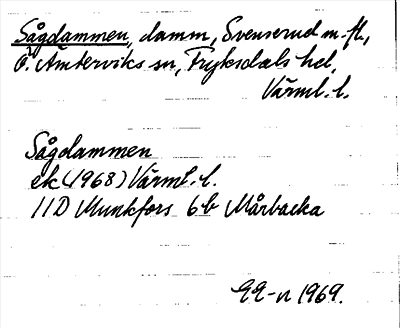 Sågdammen, damm, Svenserud m.fl.,
Ö. Ämterviks sn, Fryksdals hd,
Värml. l.
Sågdammen
ek (1968) Värml. l.
11D Munkfors 6b Mårbacka
1969.